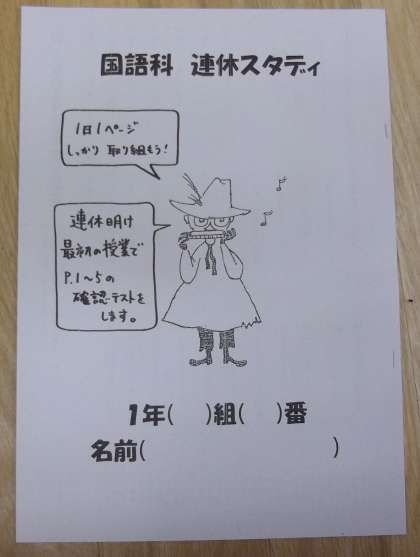 国語科 連休スタディ
1日1ページ
しっかり 取り組もう!
連休明け
最初の授業で
P.1～5の
確認テストを
します。
1年( )組( )番
名前( )